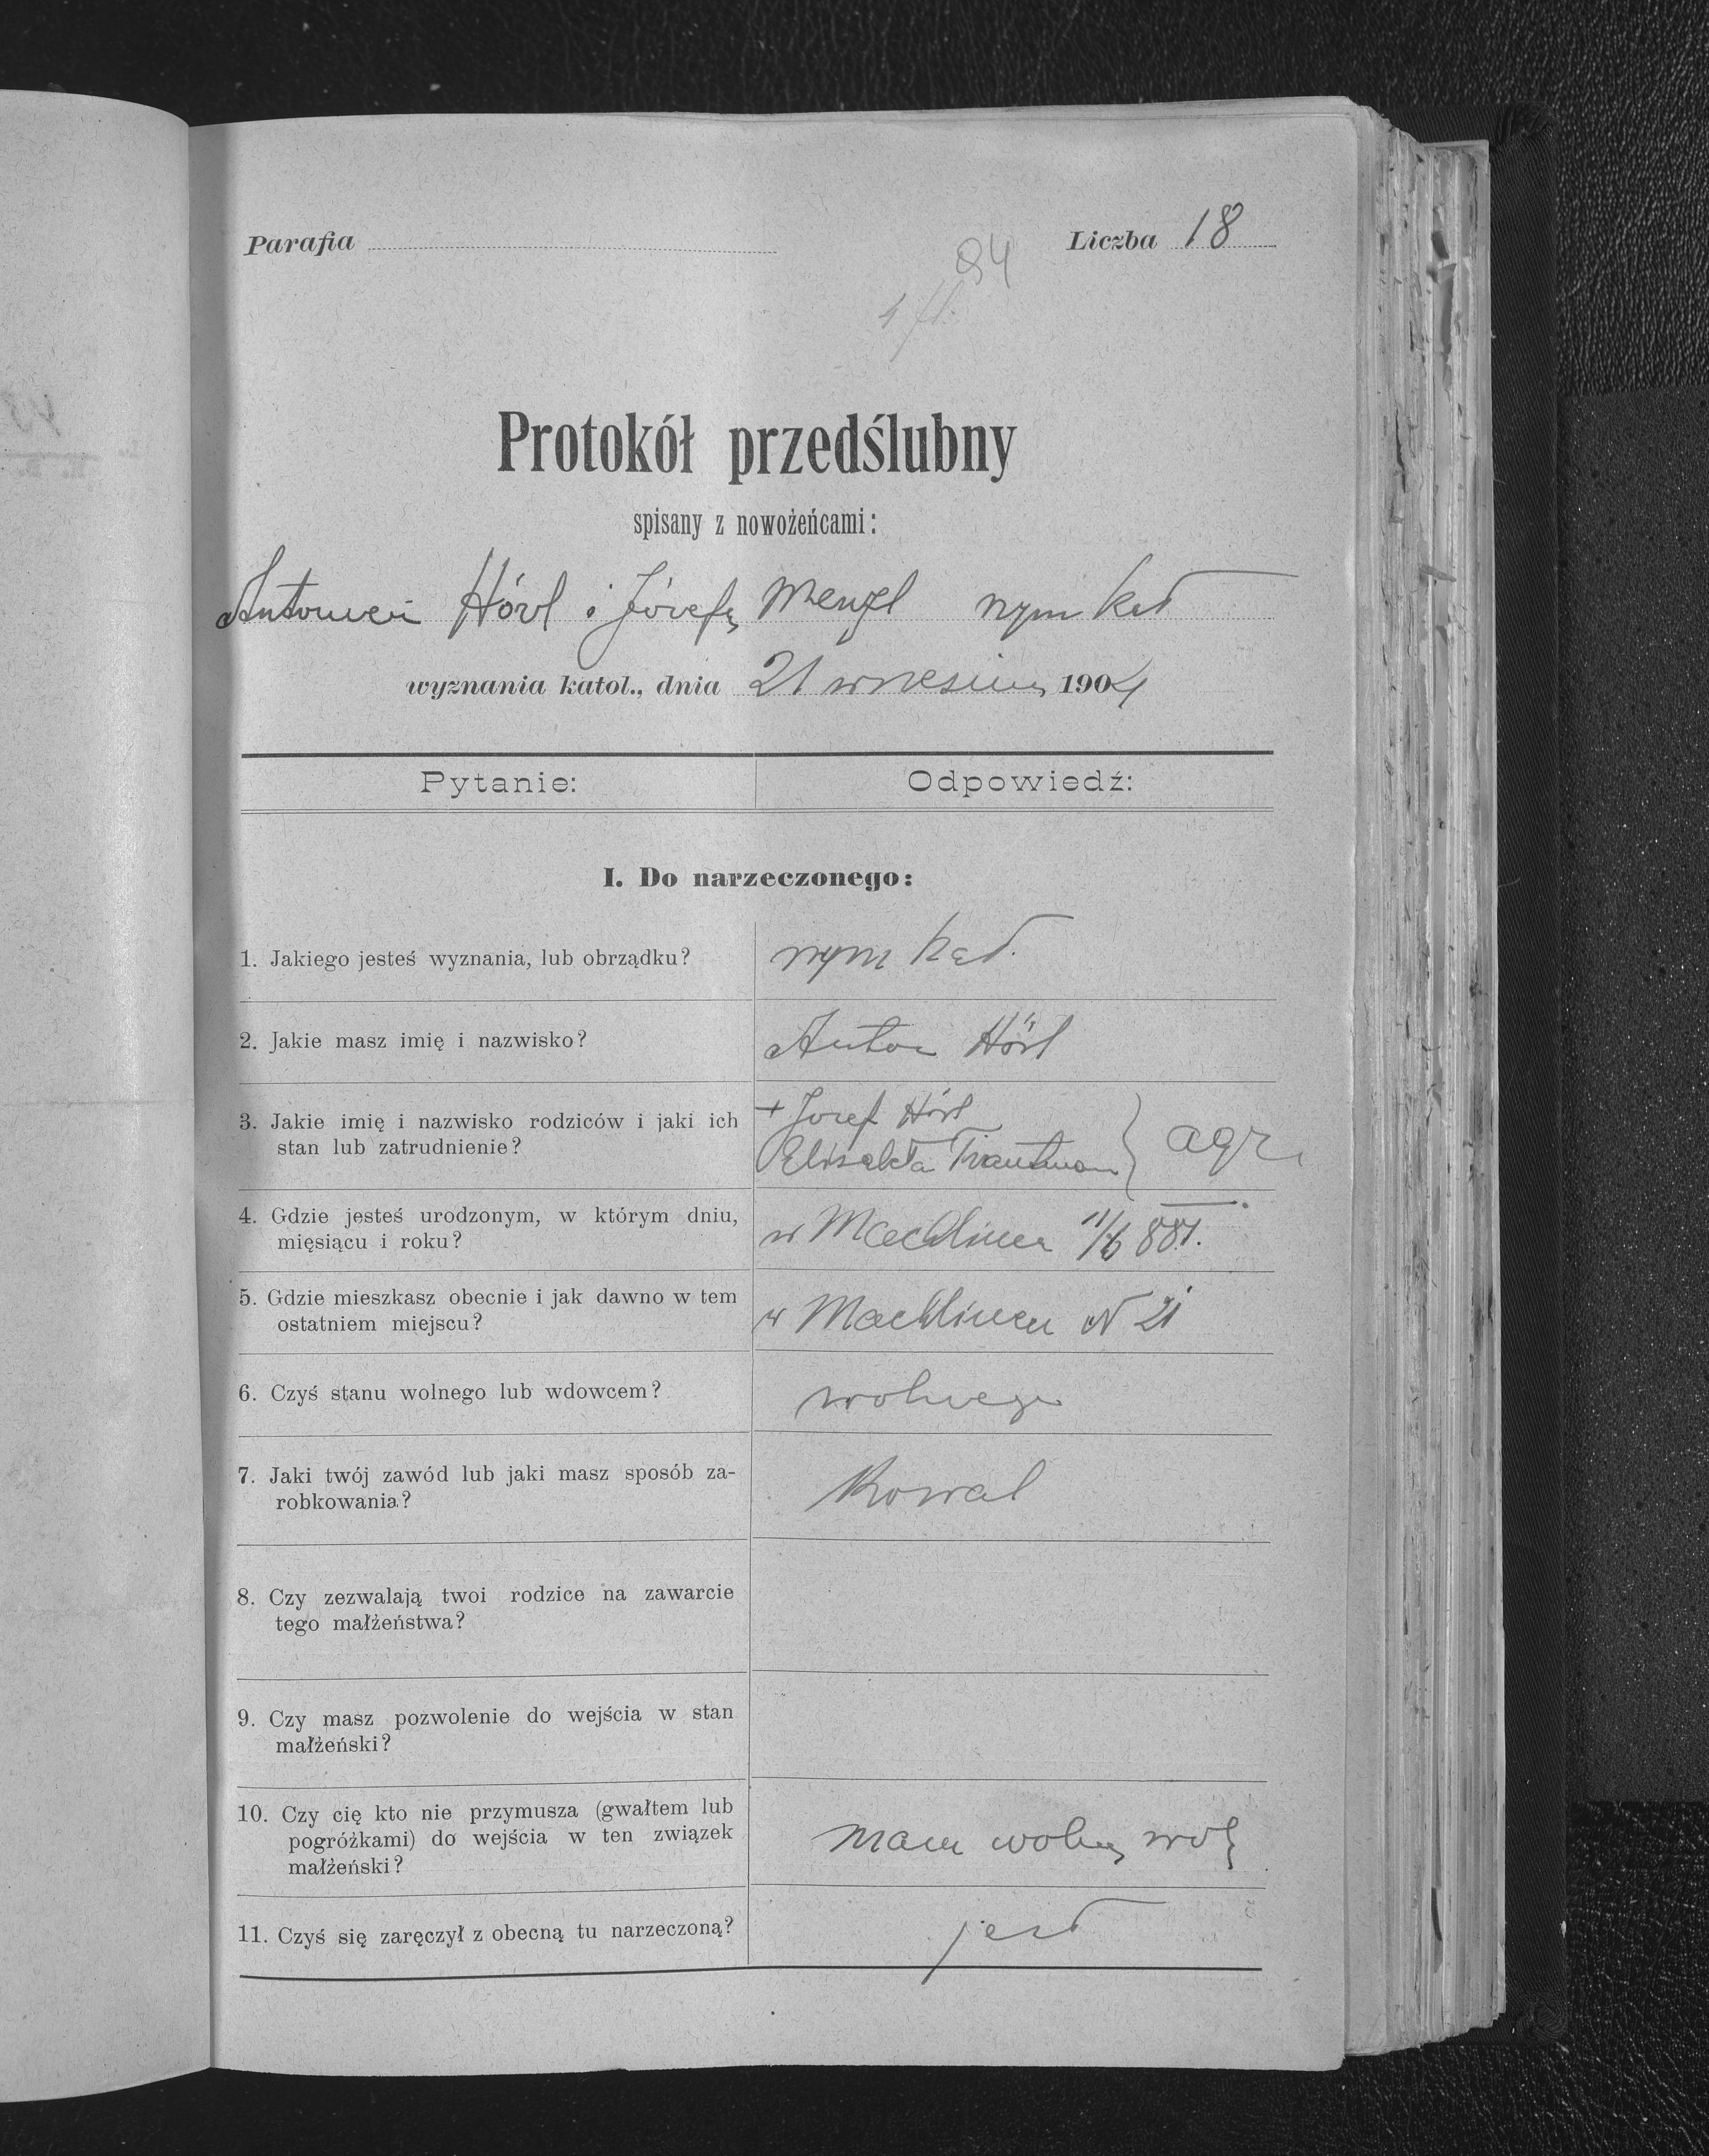 Parafia
Liczba 18
94
1 fl.
Protokół przedślubny
spisany z nowożeńcami:
Antonien Hörl i Józefą Menzl rzym kat
wyznania katol., dnia 21 wrzesnia 1904
Pytanie:
Odpowiedź:
I. Do narzeczonego:
1. Jakiego jesteś wyznania, lub obrządku?
rzym kat.
2. Jakie masz imię i nazwisko?
Anton Hörl
3. Jakie imię i nazwisko rodziców i jaki ich
stan lub zatrudnienie?
+ Jozef Hörl
Elisabeta Trautman
agr.
4. Gdzie jesteś urodzonym, w którym dniu,
mięsiącu i roku?
w Machlincu 11/6 881.
5. Gdzie mieszkasz obecnie i jak dawno w tem
ostatniem miejscu?
w Machlincu N 21
6. Czyś stanu wolnego lub wdowcem?
wolnego
7. Jaki twój zawód lub jaki masz sposób za-
robkowania?
Kowal
8. Czy zezwalają twoi rodzice na zawarcie
tego małżeństwa?
9. Czy masz pozwolenie do wejścia w stan
małżeński?
10. Czy cię kto nie przymusza (gwałtem lub
pogróżkami) do wejścia w ten związek
małżeński?
Mam wolną wolę
11. Czyś się zaręczył z obecną tu narzeczoną?
jest